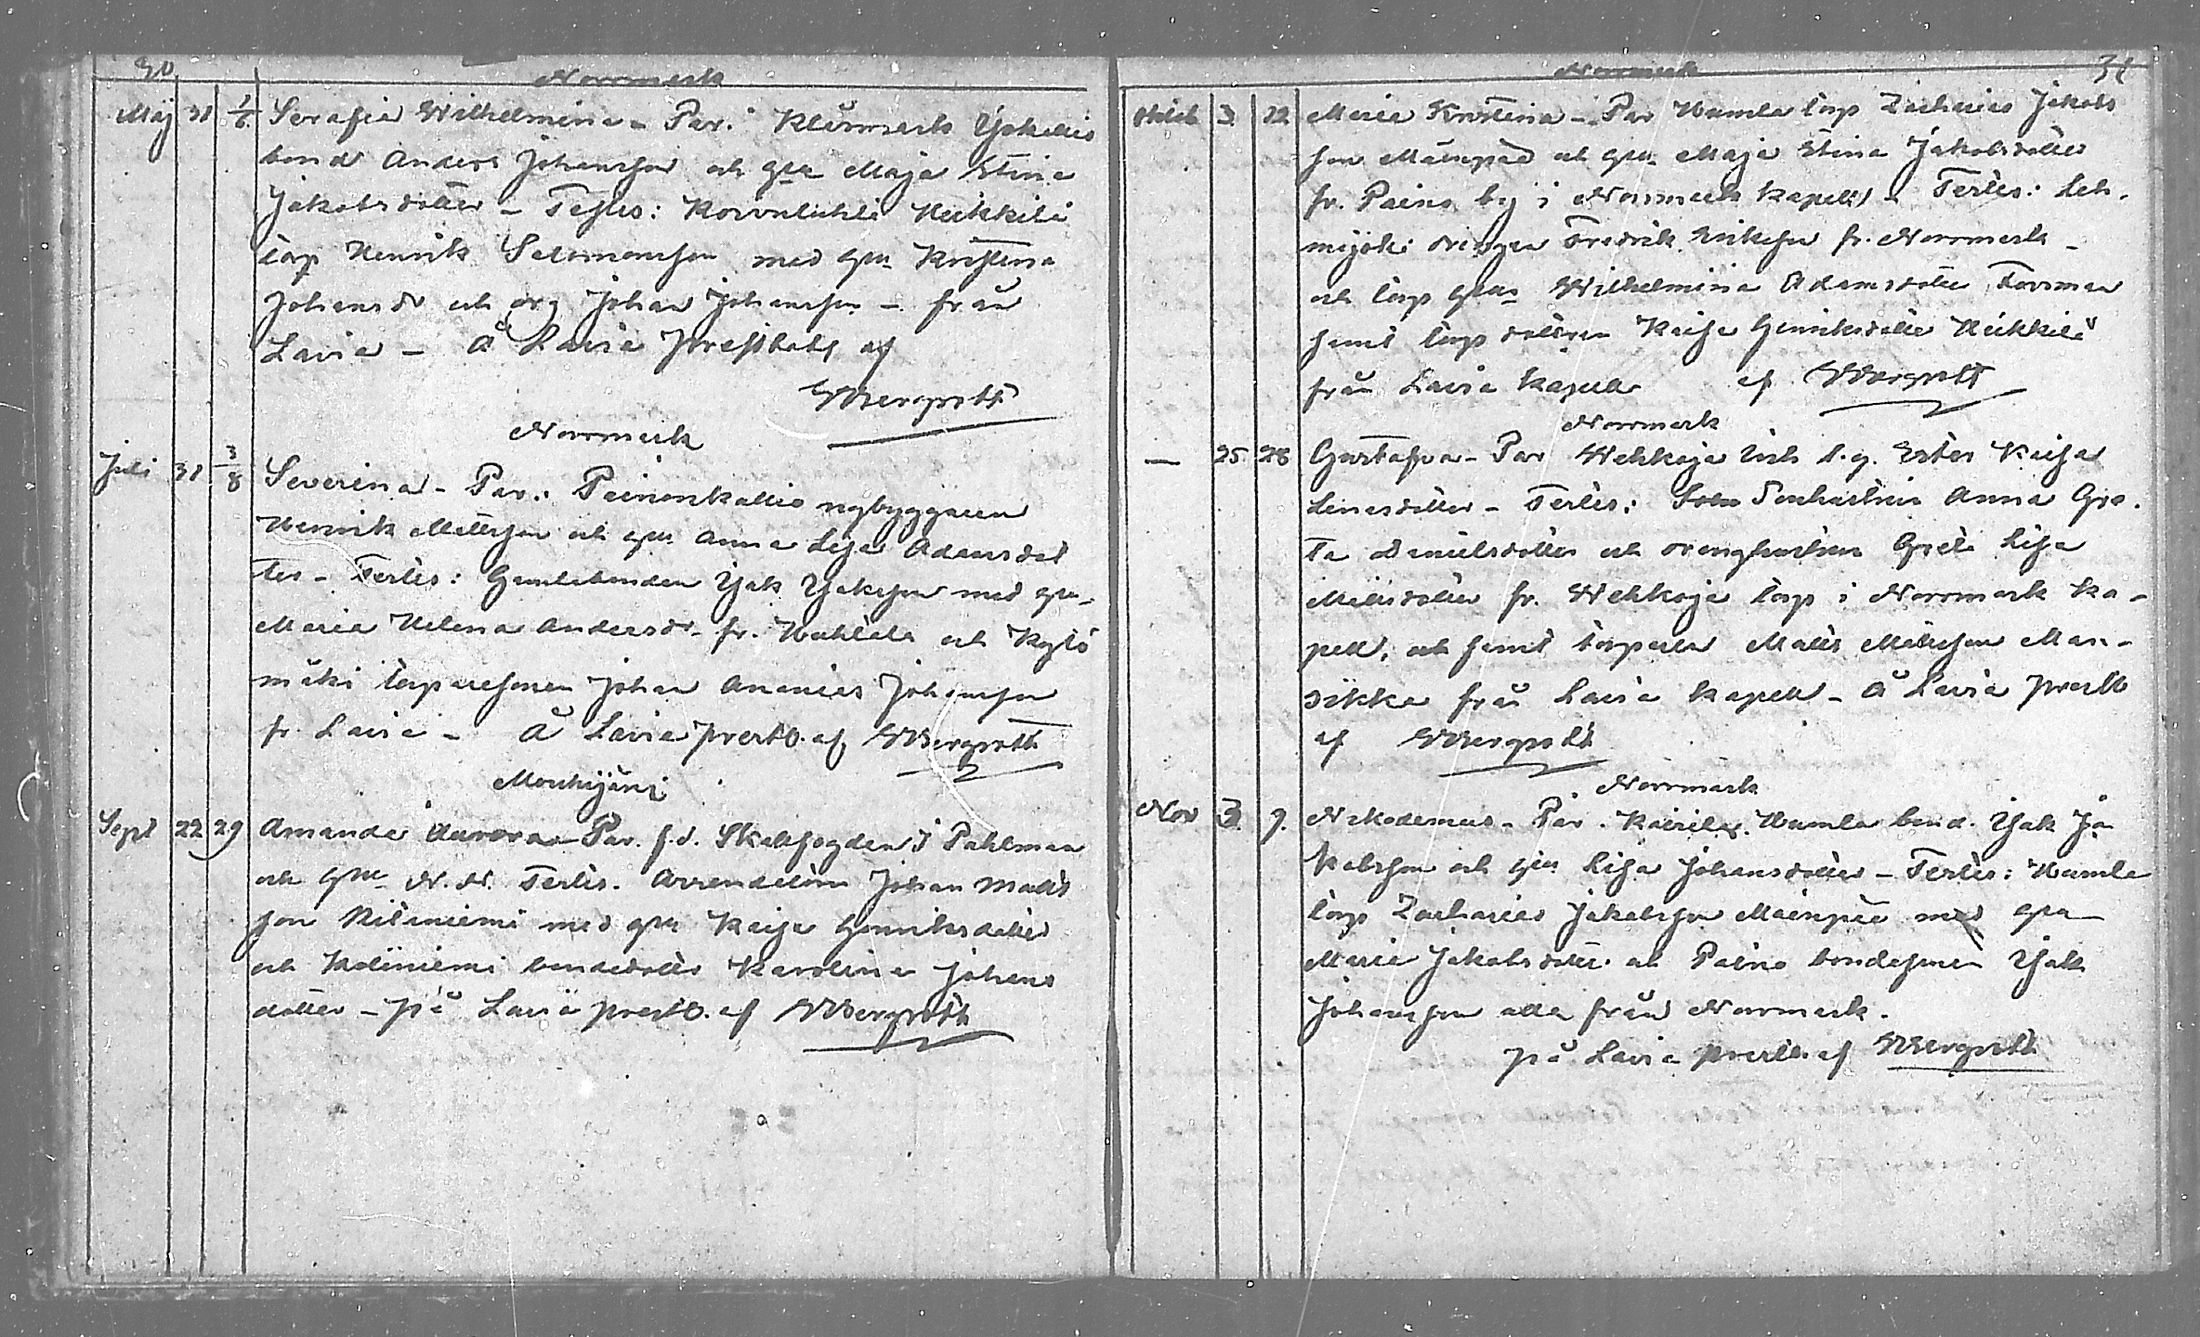 30
Norrmark
Maj 31 1/6 Serafia Wilhelmina - Par. Klåsmark Ypäkallio
bond Anders Johansson och hu Maja Stina
Jakobsdotter - Testes: Heikkilä
torp Henrik Salomonsson med hu Kristina
Johansdr och drg Johan Johansson - från
Lavia - Å Lavia prestbol af
Bergroth
Norrmark
Juli 31 3/8 Severina - Par: Peinonkallio nybyggaren
Henrik Mattsson och hu Anna Lisa Adamsdot
ter - Testes: Gamlebonden Isak Isaksson med hu
Maria Helena Andersdr fr. Huhtala och Kylä
mäki torparesonen Johan Ananias Johansson
fr. Lavia - Å Lavia prestb. af Bergroth
Mouhijärvi
Sept 22 29 Amanda Aurora - Par. f.d. Skallfogden J Pahlman
och hu N.N. Testes. Arrendatorn Johan Matts
son Niliniemi med hu Kaisa Henriksdotter
och bondedotter Karolina Johans
dotter - på Lavia prestb. af Bergroth
31
Norrmark
3 22 Maria Kristina - Par Humla torp Zacharias Jakobs
son Mäenpää och hu Maja Stina Jakobsdotter
fr. Paino by i Norrmark kapell - Testes: Leh-
mijoki drängen Fredrik Eriksson fr. Norrmark -
och torp Wilhelmina Adamsdotter Forsman
samt torp dottren Kaisa Henriksdotter Heikkilä
från Lavia kapell af Bergroth
Norrmark
— 25 28 Gustafva - Par Wehkoja inh l.g. Ester Kaisa
Linasdotter - Testes: Anna Gre-
ta Danielsdotter och dränghustrun Greta Lisa
Mattsdotter fr. Wehkoja torp i Norrmark ka-
pell, och samt torparen Matts Mattsson Man-
sikka från Lavia kapell - Å Lavia prestb
af Bergroth
Norrmark
Nov 3 9. Nikodemus - Par. Kairila Humla bond. Isak Ja
kobsson och hu Lisa Johansdotter - Testes: Humla
torp Zacharias Jakobsson Mäenpää med hu
Maria Jakobsdotter och Paino bondesonen Isak
Johansson alla från Norrmark.
på Lavia prestb. af Bergroth